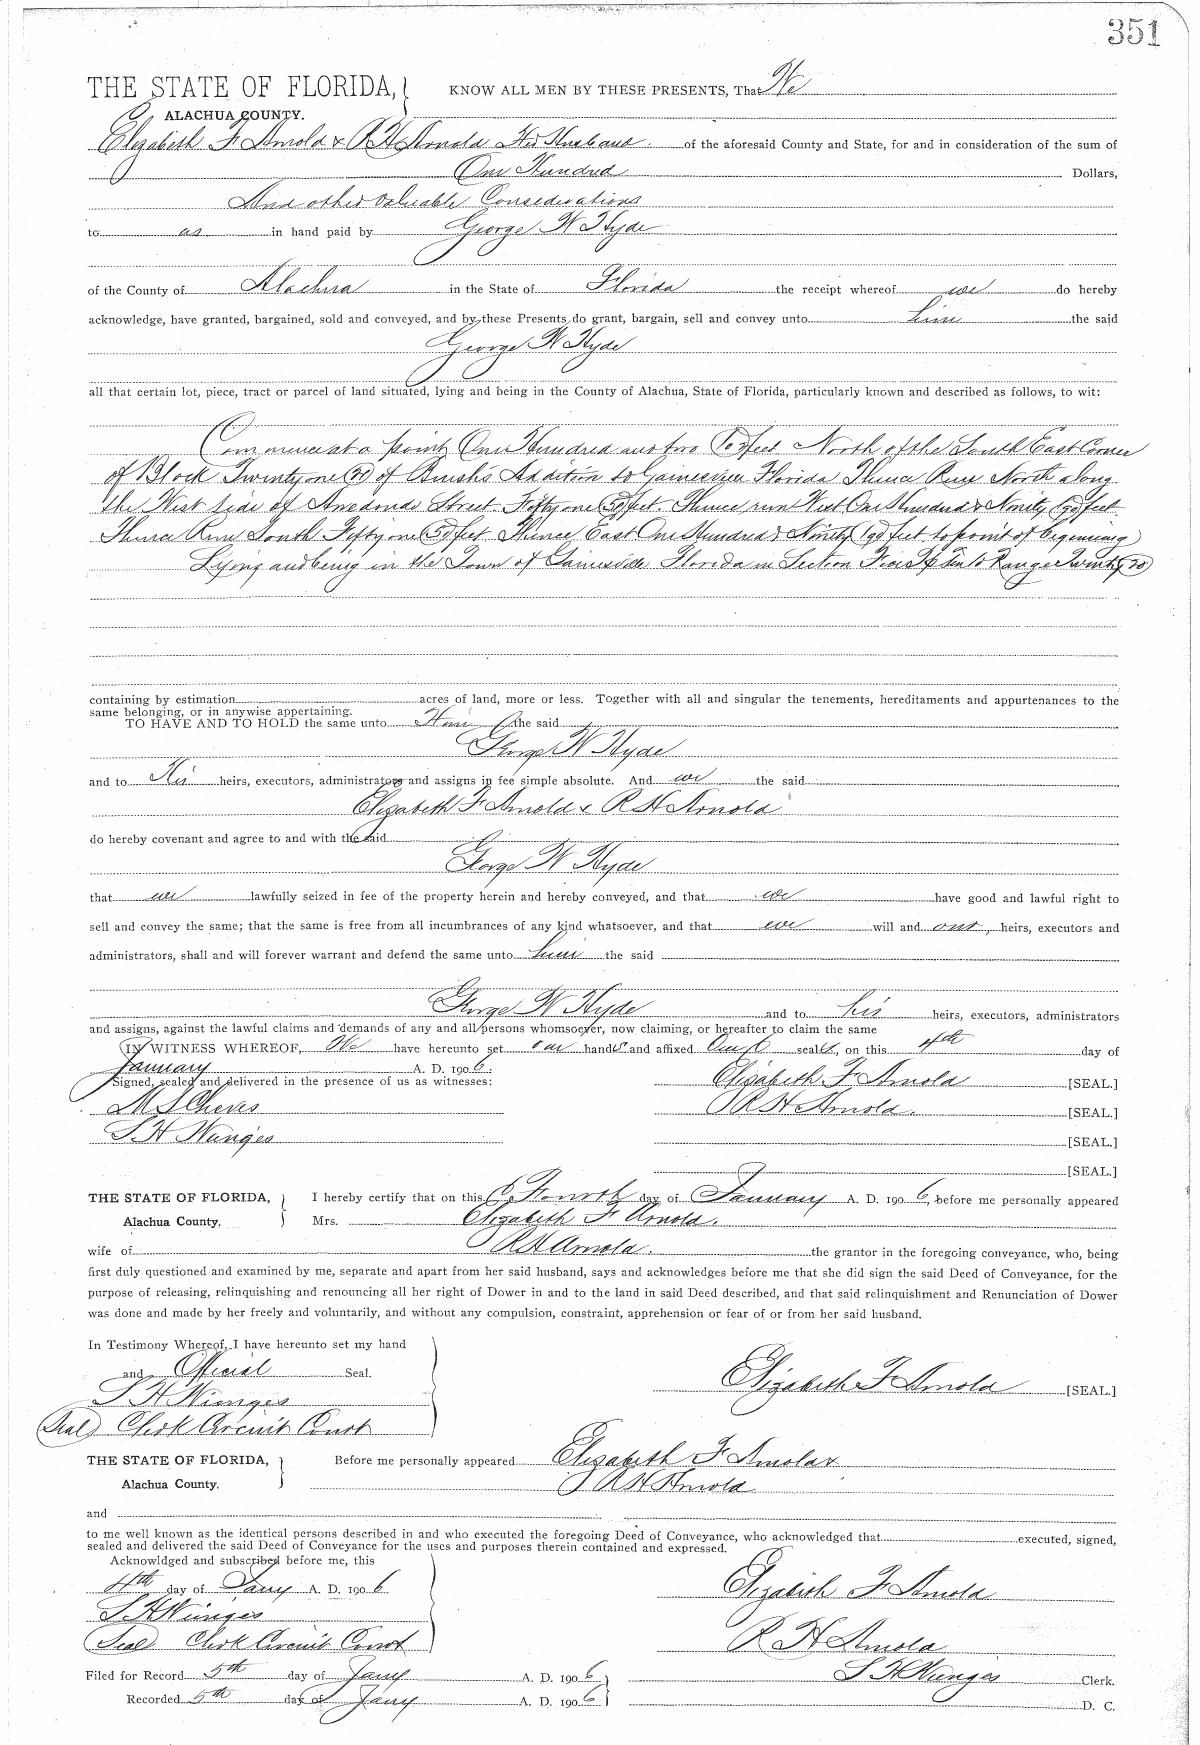 351
THE STATE OF FLORIDA, KNOW ALL MEN BY THESE PRESENTS, That We
ALACHUA COUNTY.
Elizabeth F Arnold & R H Arnold Her Husband of the aforesaid County and State, for and in consideration of the sum of
One Hundred Dollars,
And other valuable Considerations
to us in hand paid by George W Hyde
of the County of Alachua in the State of Florida the receipt whereof we do hereby
acknowledge, have granted, bargained, sold and conveyed, and by these Presents do grant, bargain, sell and convey unto him the said
George W Hyde
all that certain lot, piece, tract or parcel of land situated, lying and being in the County of Alachua, State of Florida, particularly known and described as follows, to wit:
Commence at a point One Hundred and two (102) feet North of the South East Corner
of Block Twenty one (21) of Brush's Addition to Gainesville Florida Thence Run North along
the West side of Arredonda Street Fifty one (51) feet. Thence run West One Hundred & Ninety (190) feet
Thence Run South Fifty one (51) feet Thence East One Hundred & Ninety (190) feet to point of beginning
Lying and being in the Town of Gainesville Florida in Section Five Tp Ten 10 Range Twenty (20)
containing by estimation acres of land, more or less. Together with all and singular the tenements, hereditaments and appurtenances to the
same belonging, or in anywise appertaining.
TO HAVE AND TO HOLD the same unto Him the said
George W Hyde
and to His heirs, executors, administrators and assigns in fee simple absolute. And we the said
Elizabeth F Arnold & R H Arnold
do hereby covenant and agree to and with the said
George W Hyde
that we lawfully seized in fee of the property herein and hereby conveyed, and that we have good and lawful right to
sell and convey the same; that the same is free from all incumbrances of any kind whatsoever, and that we will and our, heirs, executors and
administrators, shall and will forever warrant and defend the same unto him the said
George W Hyde and to his heirs, executors, administrators
and assigns, against the lawful claims and demands of any and all persons whomsoever, now claiming, or hereafter to claim the same
IN WITNESS WHEREOF, We have hereunto set our hands and affixed Our seals, on this 4th day of
January A. D. 1906.
Signed, sealed and delivered in the presence of us as witnesses: Elizabeth F Arnold [SEAL.]
M S Cheves R H Arnold. [SEAL.]
S H Wienges [SEAL.]
[SEAL.]
THE STATE OF FLORIDA, I hereby certify that on this Fourth day of January A. D. 1906, before me personally appeared
Alachua County. Mrs. Elizabeth F Arnold.
wife of R H Arnold. the grantor in the foregoing conveyance, who, being
first duly questioned and examined by me, separate and apart from her said husband, says and acknowledges before me that she did sign the said Deed of Conveyance, for the
purpose of releasing, relinquishing and renouncing all her right of Dower in and to the land in said Deed described, and that said relinquishment and Renunciation of Dower
was done and made by her freely and voluntarily, and without any compulsion, constraint, apprehension or fear of or from her said husband.
In Testimony Whereof, I have hereunto set my hand
and Official Seal. Elizabeth F Arnold [SEAL.]
S H Wienges
(Seal) Clerk Circuit Court
THE STATE OF FLORIDA, Before me personally appeared Elizabeth F Arnold &
Alachua County. R H Arnold
and
to me well known as the identical persons described in and who executed the foregoing Deed of Conveyance, who acknowledged that executed, signed,
sealed and delivered the said Deed of Conveyance for the uses and purposes therein contained and expressed.
Acknowldged and subscribed before me, this
4th day of Jany A. D. 1906 Elizabeth F Arnold
S H Wienges
(Seal) Clerk Circuit Court R H Arnold
Filed for Record 5th day of Jany A. D. 1906 S H Wienges Clerk.
Recorded 5th day of Jany A. D. 1906 D. C.